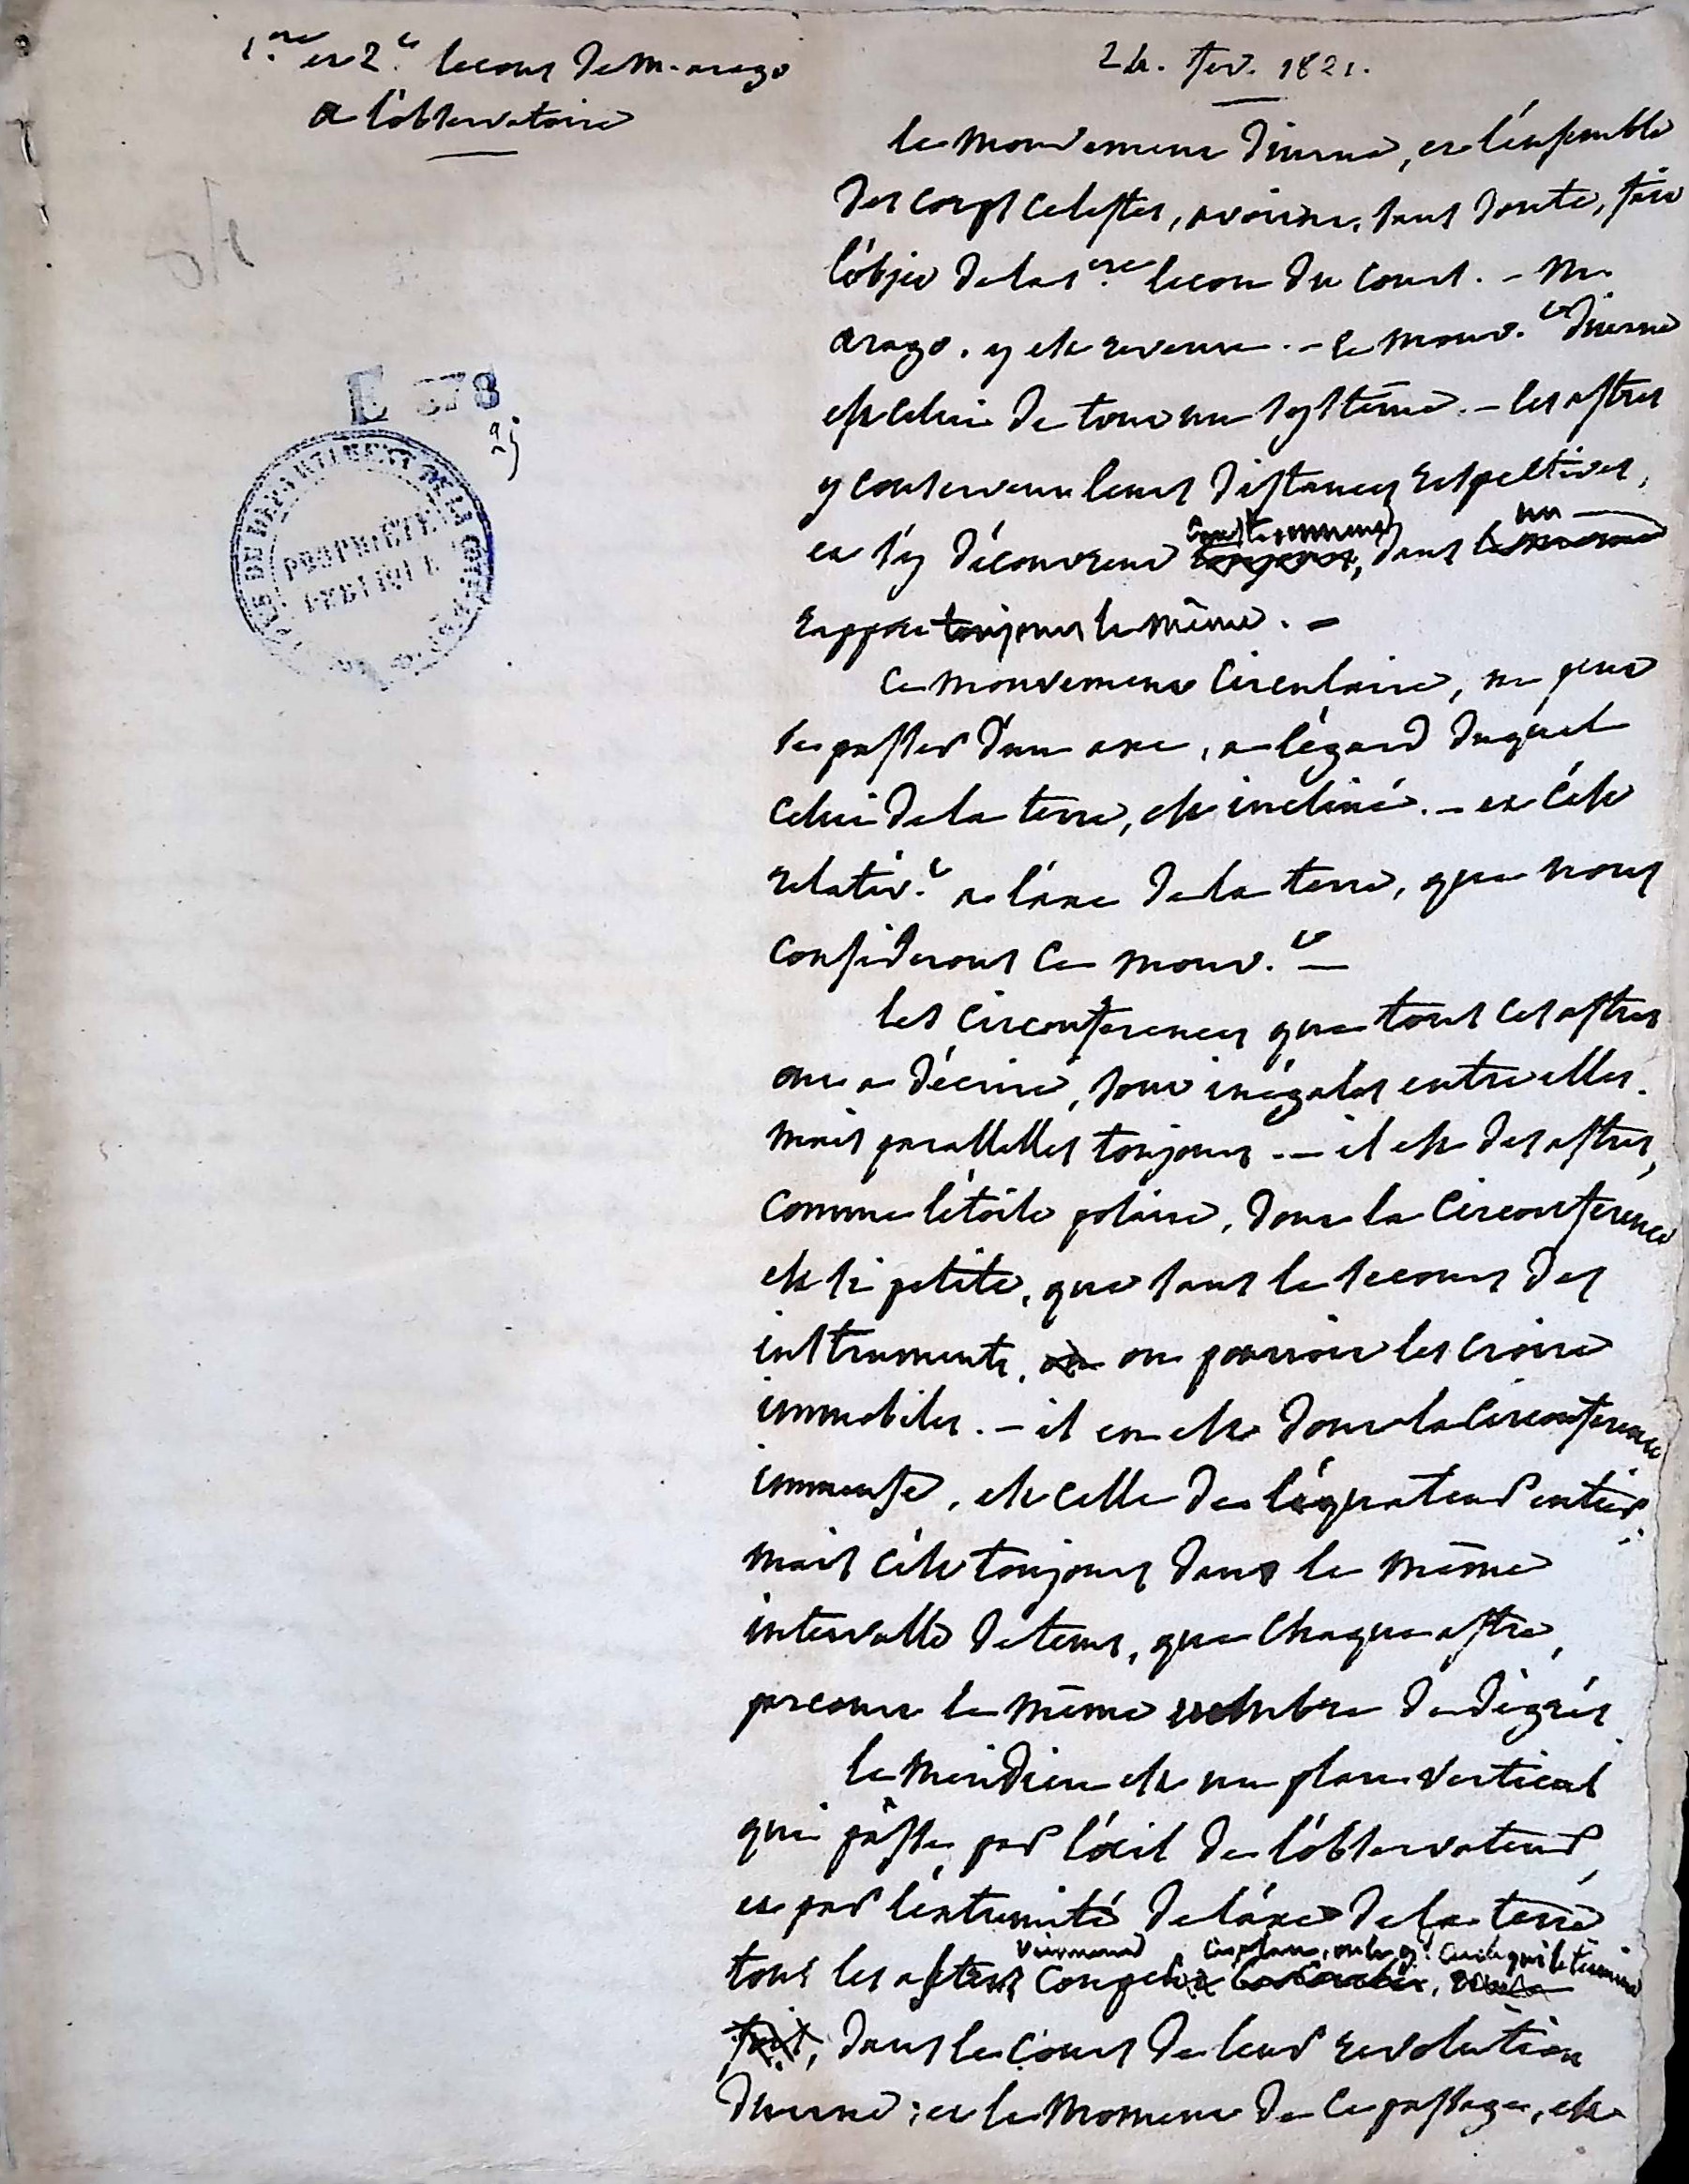 1.ere et 2.e lecons de M. arago
a l'observatoire
24. fev. 1821.
le mouvement diurne, et l'ensemble
des corps celestes, avoient, sans doute, fait
l'objet de la 1.ere lecon du cours. - M.
arago. y est revenu. - le mouv.t diurne
est celui de tout un systême. - les astres
y conservent leurs distances respectives,
et s'y découvrent constamment, dans un
rapport toujours le même. -
E 378
25
PROPRIÉTÉ
PUBLIQUE
ce mouvement circulaire, ne peut
se passer d'un axe, a l'égard duquel
celui de la terre, est incliné. - et c'est
relativ.t a l'axe de la terre, que nous
considerons ce mouv.t -
les circonferences que tous ces astres
ont a décrire, sont inégales entre elles.
mais parallelles toujours. - il est des astres,
comme l'étoile polaire, dont la circonference
est si petite, que sans le secours des
instruments, on pourroit les croire
immobiles. - il en est dont la circonference
immense, est celle de l'équateur entier.
mais c'est toujours dans le même
intervalle de tems, que chaque astre,
parcourt le même nombre de dégrés
le meridien est un plan vertical
qui passe, par l'œil de l'observateur,
et par l'extremité de l'axe de la terre
tous les astres viennent couper ce plan, ou le cercle qui le termine
dans le cours de leur revolution
diurne ; et le moment de ce passage, est